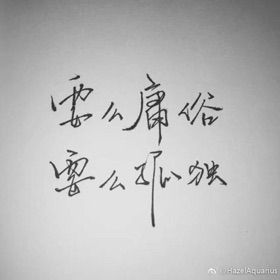 要么庸俗
要么孤独
@HazelAquarius